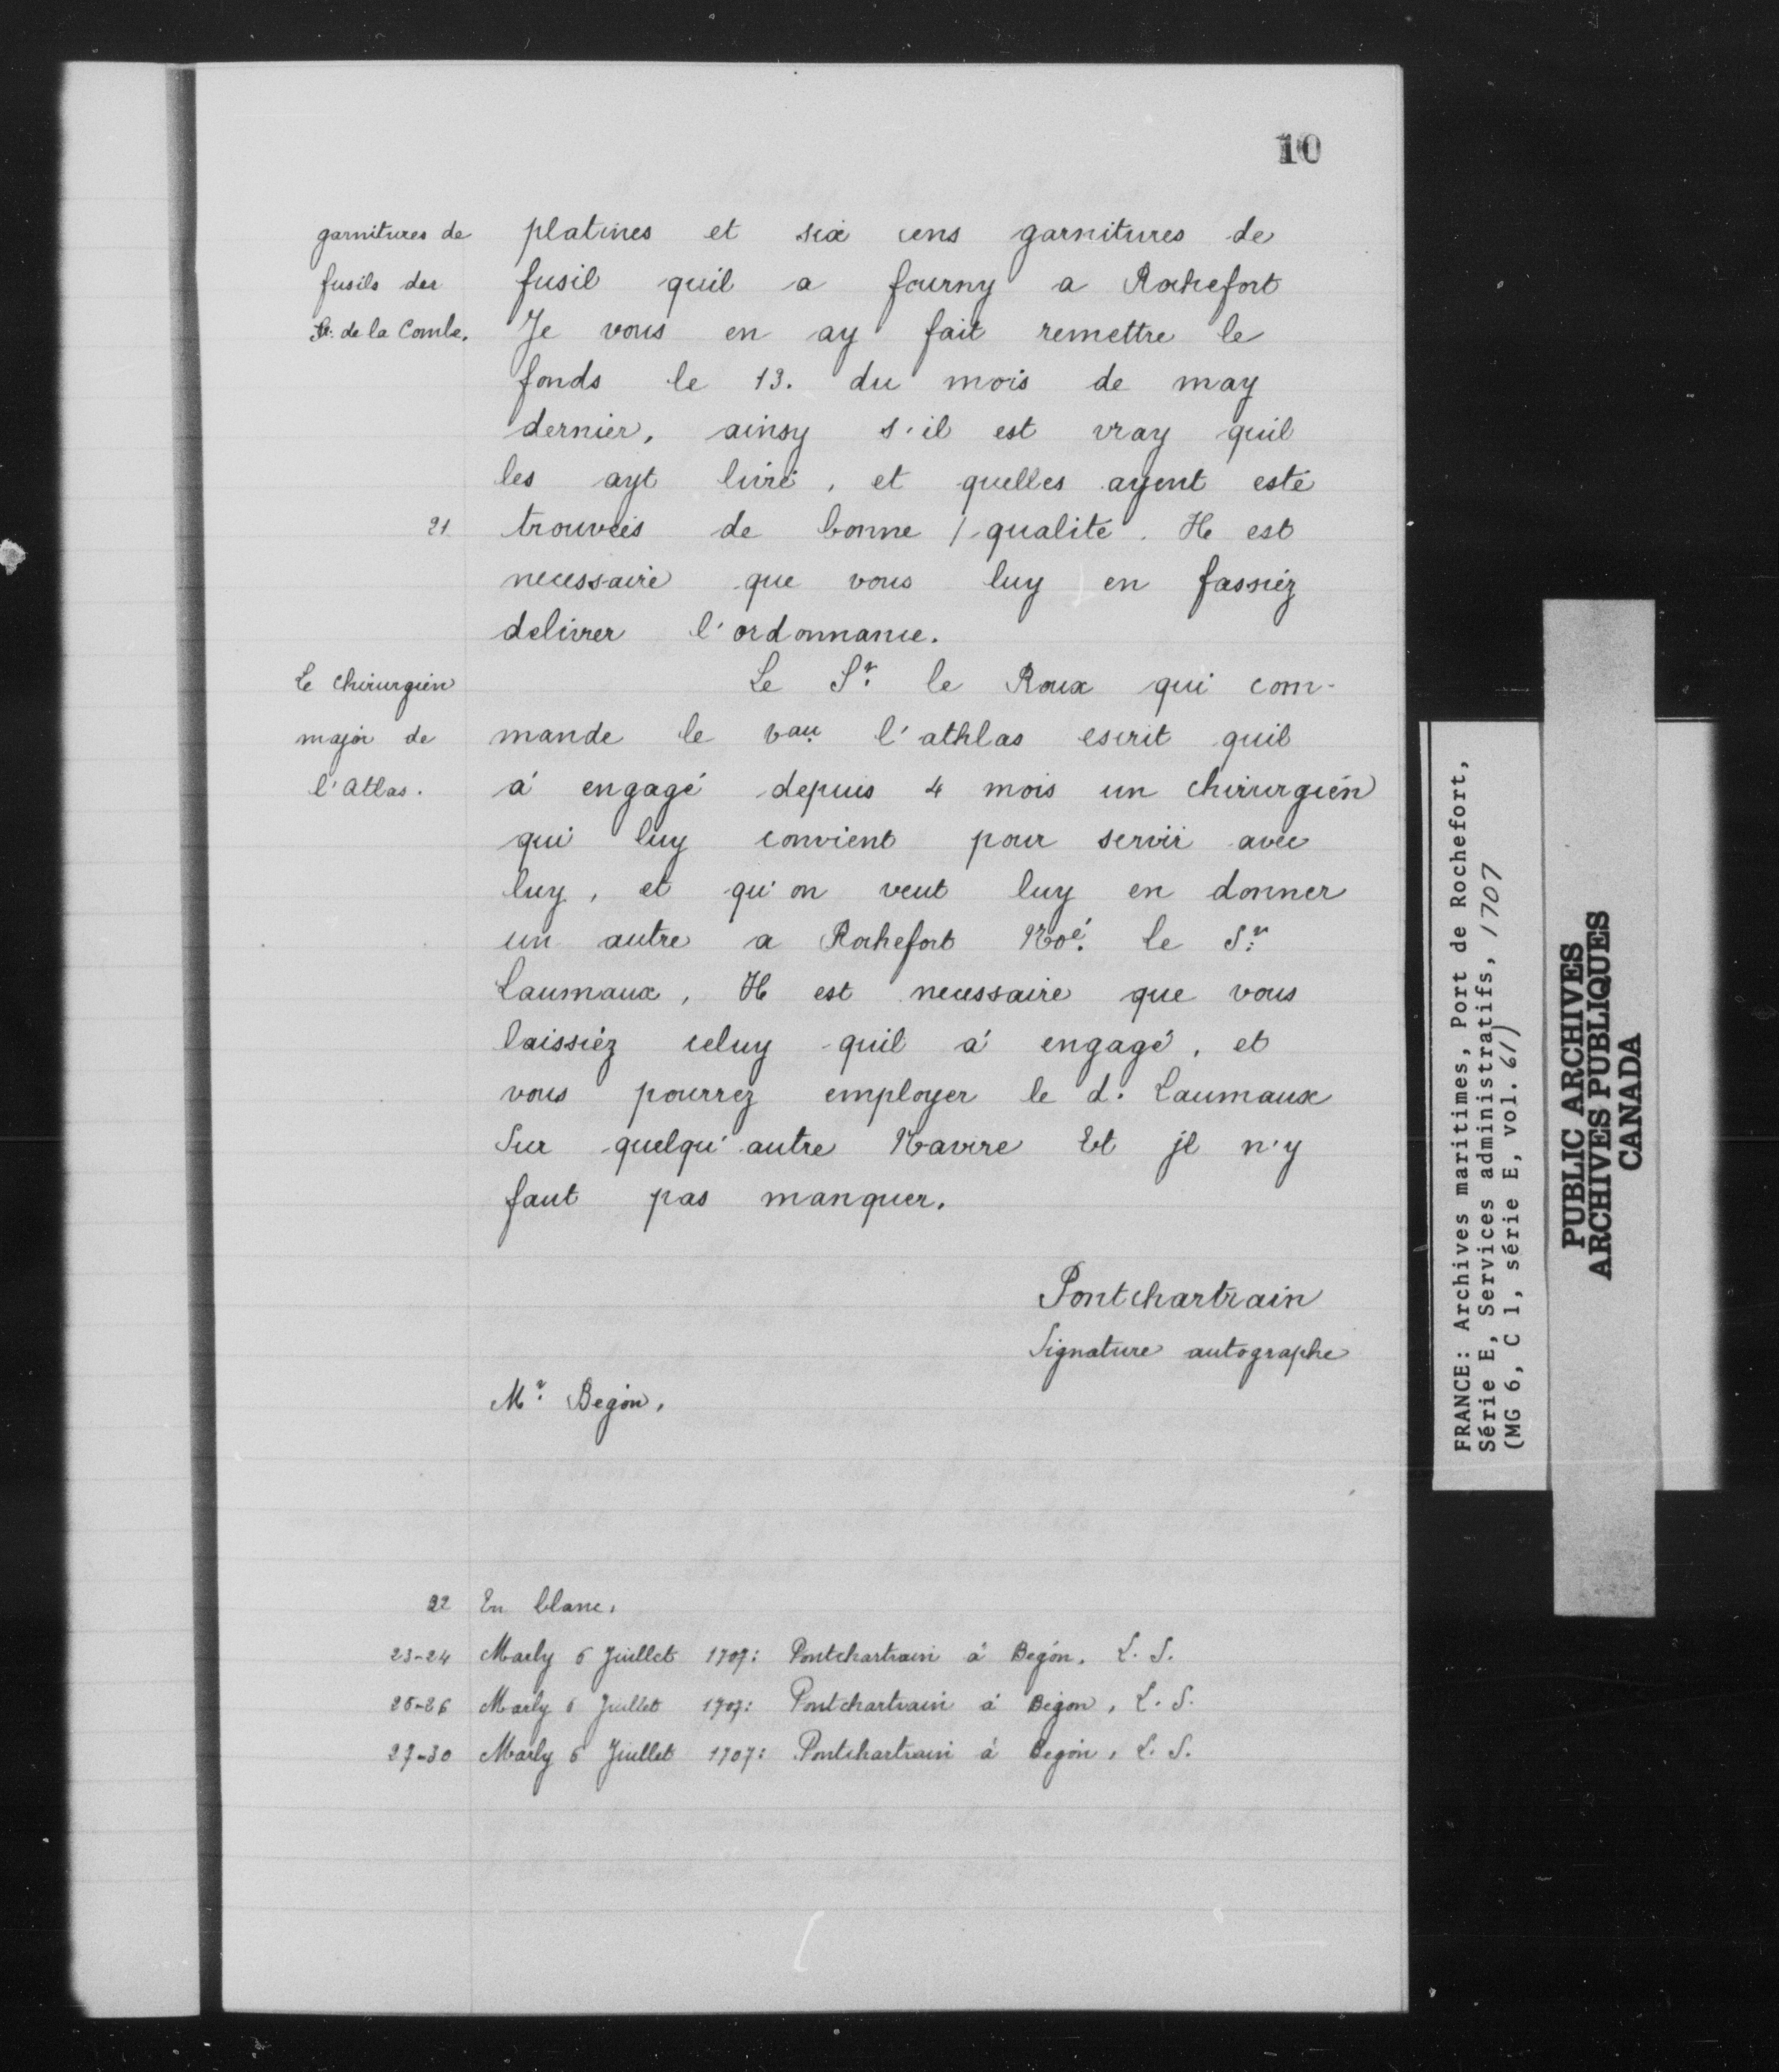 10
garnitures de
fusils der
Sr. de la Combe.
platines et six cens garnitures de
fusil quil a fourny a Rochefort
Je vous en ay fait remettre le
fonds le 13. du mois de may
dernier, ainsy s'il est vray quil
les ayt livré, et quelles ayent esté
21 trouvéés de bonne / qualité. Il est
necessaire que vous luy en fassiéz
delivrer l'ordonnance.
Le chirurgien
major de
l'Atlas.
Le Sr. le Roux qui com-
mande le vau l'athlas escrit quil
á engagé depuis 4 mois un chirurgién
qui luy convient pour servir avec
luy, et qu'on veut luy en donner
un autre a Rochefort Noé. le Sr.
Laumaux, Il est necessaire que vous
laissiéz celuy quil á engagé, et
vous pourrez employer le d. Laumaux
Sur quelqu'autre Navire Et jl n'y
faut pas manquer.
Pontchartrain
Signature autographe
Mr. Begon,
22 En blanc,
23-24 Marly 6 Juillet 1707: Pontchartrain á Begon, L. S.
25-26 Marly 6 Juillet 1707: Pontchartrain á Begon, L. S.
27-30 Marly 6 Juillet 1707: Pontchartrain á Begon, L. S.
FRANCE: Archives maritimes, Port de Rochefort,
Série E, Services administratifs, 1707
(MG 6, C 1, série E, vol. 61)
PUBLIC ARCHIVES
ARCHIVES PUBLIQUES
CANADA